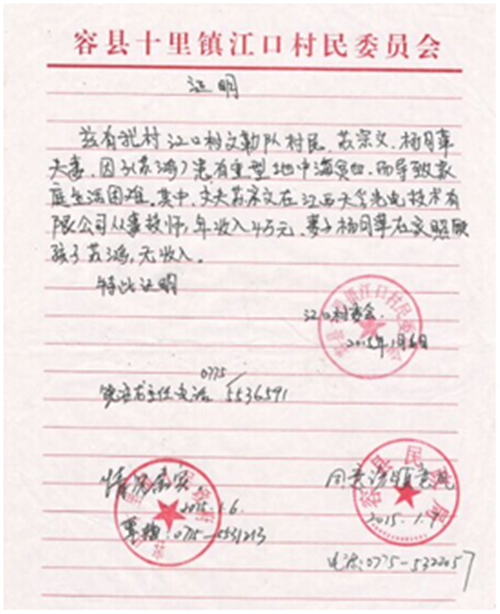 容县十里镇江口村民委员会
证明
兹有我村江口村文勒队村民 苏宗文、杨月苹
夫妻，因子(苏鸿)患有重型地中海贫血，而导致家
庭生活困难。其中，丈夫苏宗文在江西天孚光电技术有
限公司从事技师，年收入4万元，妻子杨月苹在家照顾
孩子苏鸿，无收入。
特此证明
江口村委会
2015年1月6日
0775
5536591
情况属实
2015.1.6
0775-5531213
同意
2015.1.9
电话:0775-5322057